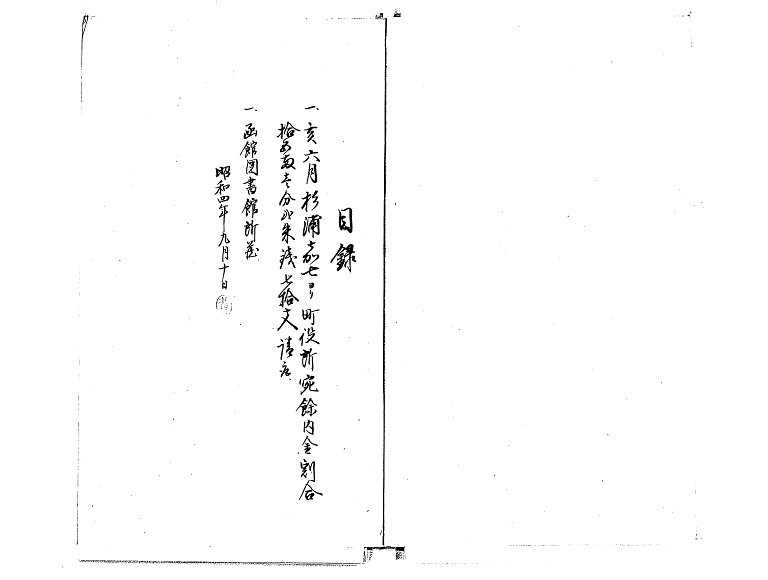 目録
一、亥六月杉浦嘉七ヨリ町役所宛餘内金割合
拾五両壱分弐朱銭七拾文請取
一、函館図書館所蔵
昭和四年九月十日